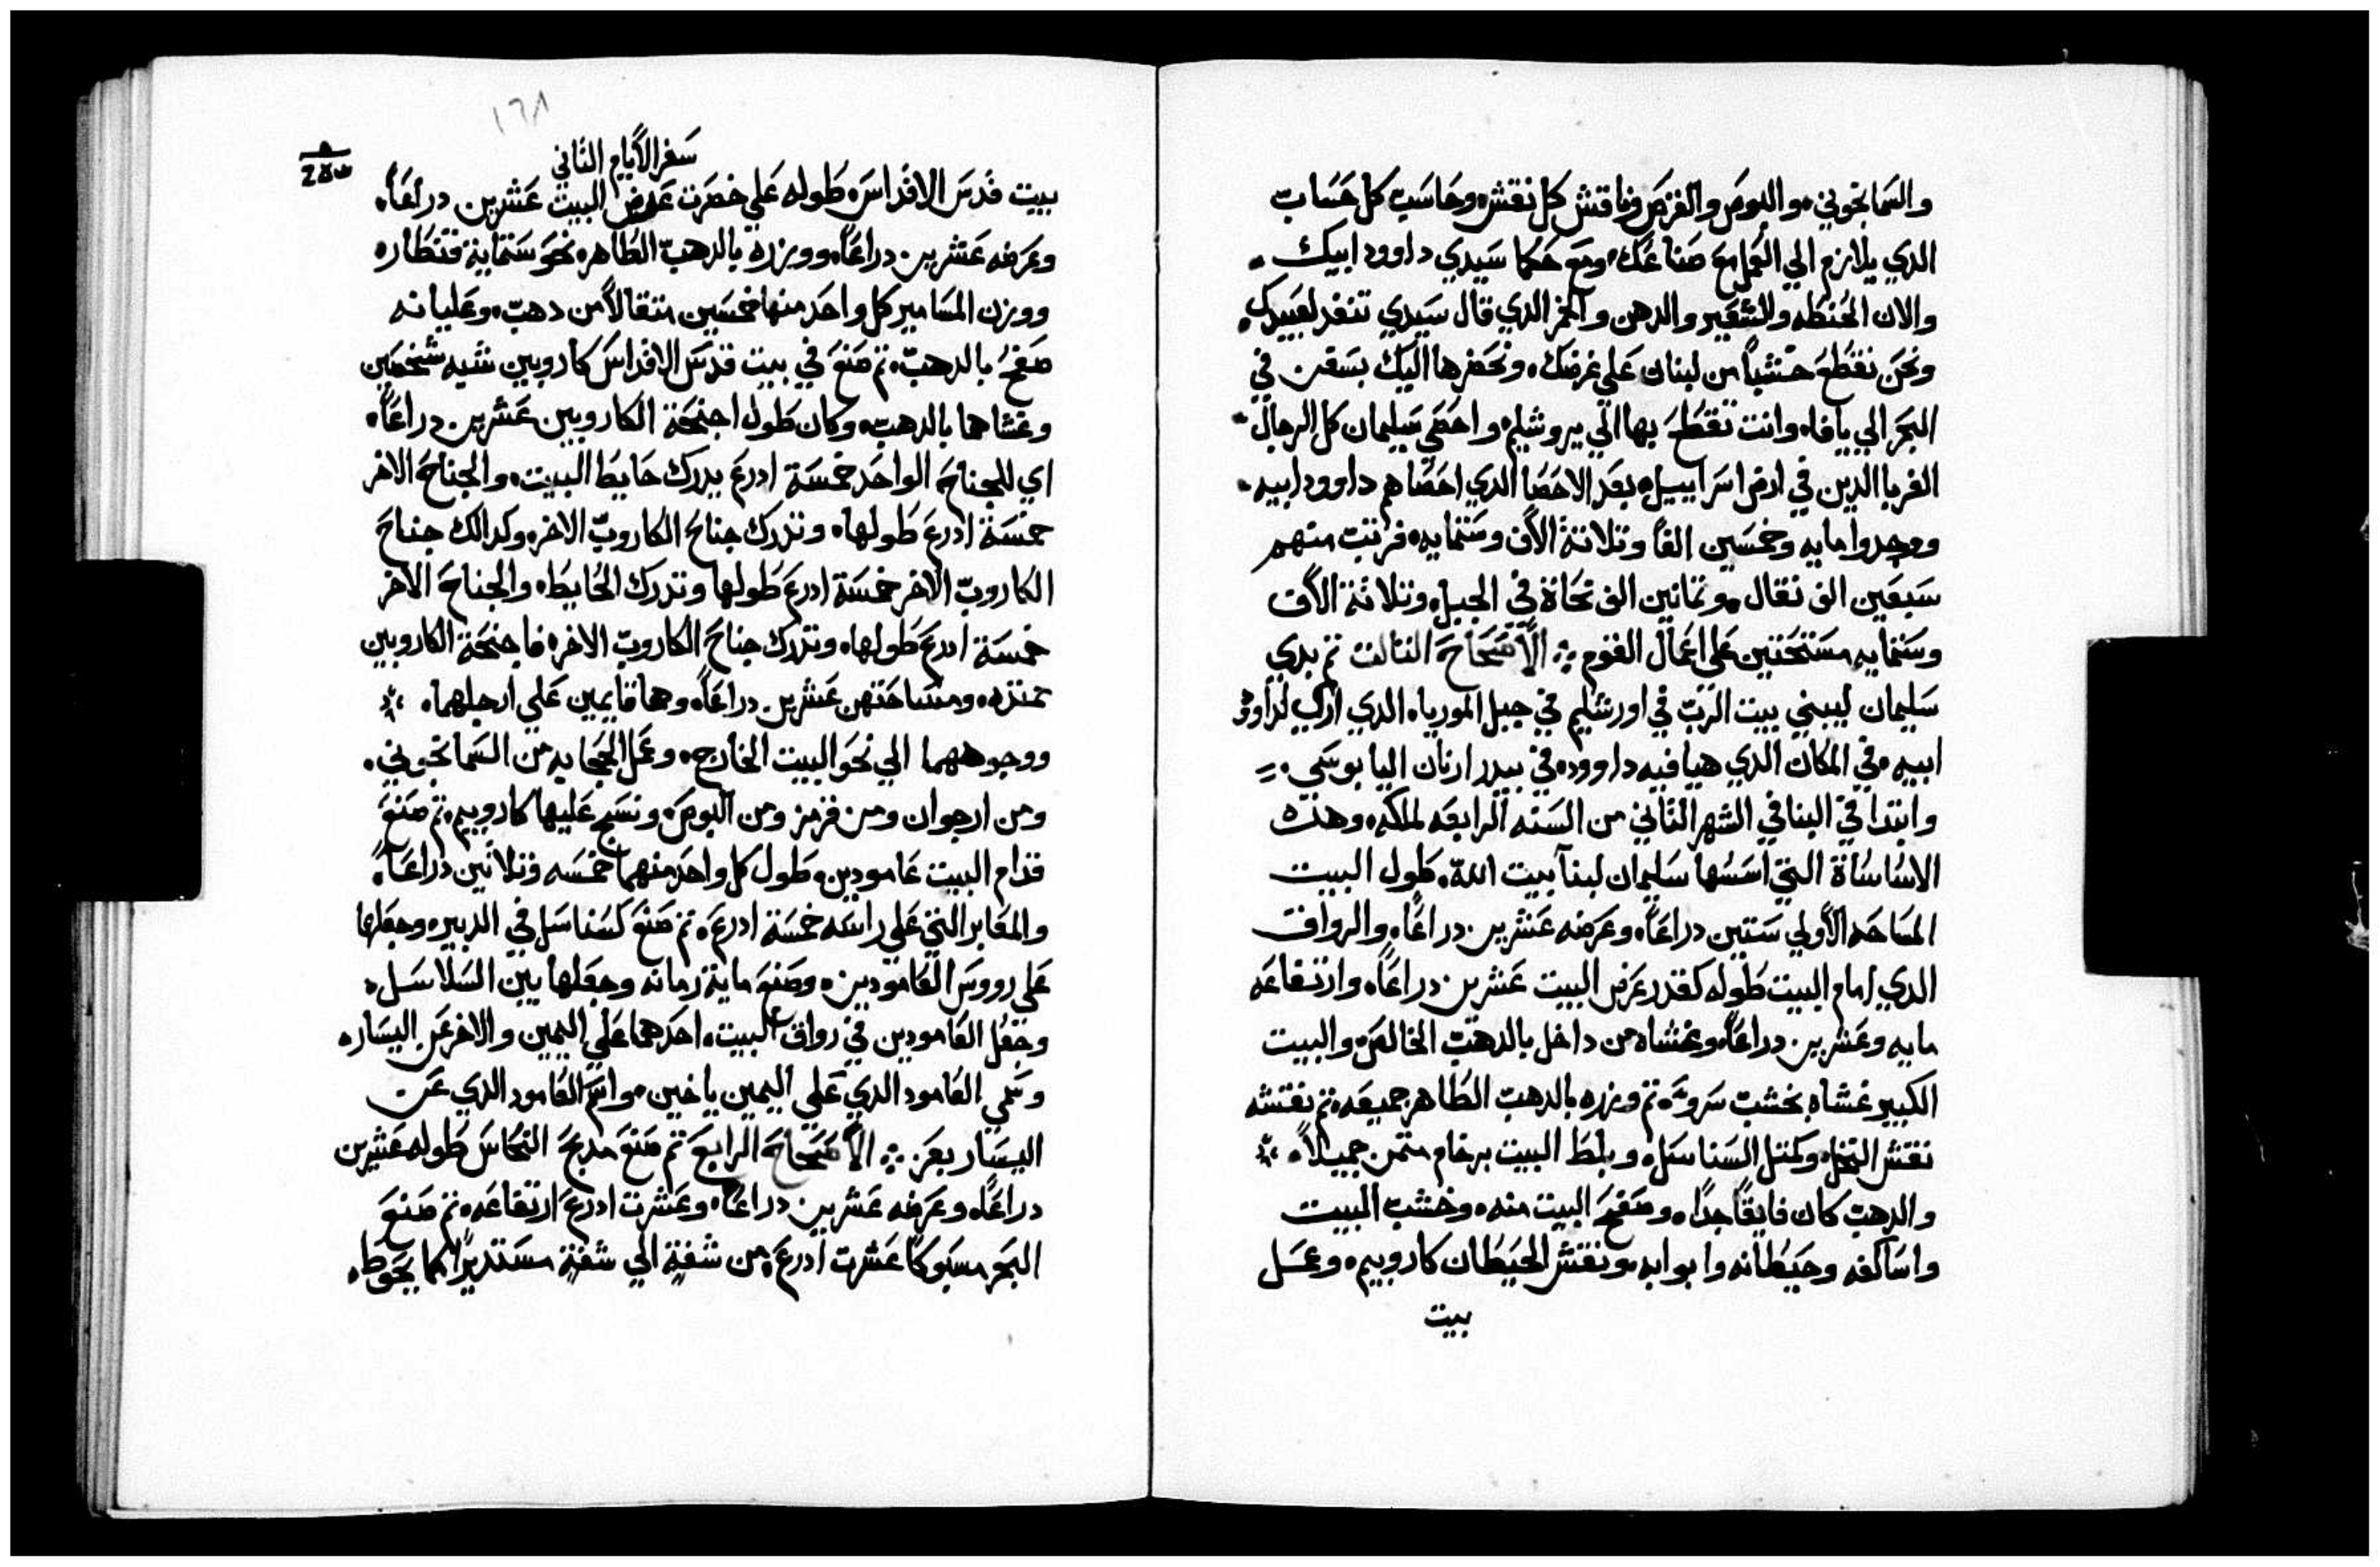 والسَمانجوني، والبوص والقرمز وناقش كل نقش، وحَاسَب كل حَسَاب
الدي يلازم الي العمل مع صناعَك، ومع حكما سَيدي داوود ابيك،
والان الحُنطه والشعَير والدهن والخمر الدي قال سَيدي تنفد لعَبيدك،
ونحَن نقطع خشباً من لبنان عَلي غرضك، ونحَضرها اليك بسَفن في
البحَر الي يافا، وانت تقطع بها الي يروشليم، واحصَي سَليمان كل الرجال
الغربا الدين في ارض اسَراييل، بعَد الاحَصا الدي احَصاهم داوود ابيه،
ووجدوا مايه وخمسَين الفاً وتلاتة الاف وسَتمايه، فرتب منهم
سَبعَين الف نقال، وتمانين الف نحَاة في الجبل، وتلاتة الاف
وسَتمايه مسَتحَتين عَلي اعمال القوم ⁘ الاَصَحَاحَ التالت تم بدي
سَليمان ليبني بيت الرب في اورشليم في جبل الموريا، الدي اري لداوود
ابيه، في المكان الدي هيا فيه داوود، في بيدر ارنان اليابوسَي،
وابتدا في البنا في الشهر التاني من السَنه الرابعَه لملكه، وهده
الاسَاسَاة التي اسَسَها سَليمان لبنا بيت الله، طول البيت
المسَاحَه الاولي سَتين دراعَاً، وعَرضه عَشرين دراعَاً، والرواق
الدي امام البيت طوله كقدر عَرض البيت عَشرين دراعَاً، وارتفاعَه
مايه وعَشرين دراعَاً، وغشاه من داخل بالدهب الخالص، والبيت
الكبير غشاه بخشب سَرو، تم وزره بالدهب الطاهر جميعَه، تم نقشه
نقش النخل، وكمتل السَناسَل، وبلط البيت برخام متمن جميلاً،
والدهب كان فايقاً جداً، وصَفح البيت منه، وخشب البيت
واسَاكفه وحَيطانه وابوابه، ونقش الحَيطان كاروبيم، وعمَل
بيت
١٦٨
سَفر الأيام التاني
بيت قدسَ الاقداسَ، طوله عَلي خضرت عَرض البيت عَشرين دراعَاً،
وعَرضه عَشرين دراعَاً، ووزره بالدهب الطاهر، نحَو سَتماية قنطار،
ووزن المسَامير كل واحَد منها خمسَين متقالاً من دهب، وعَليانه
صَفحَ بالدهب، تم صَنع في بيت قدسَ الاقداسَ كاروبين شبه شخصَين
وغشاهما بالدهب، وكان طول اجنحَة الكاروبين عَشرين دراعَاً،
اي للجناحَ الواحَد خمسَة ادرع يدرك حَايط البيت، والجناحَ الاخر
خمسَة ادرع طولها، وتدرك جناحَ الكاروب الاخر، وكدالك جناحَ
الكاروب الاخر خمسَة ادرع طولها وتدرك الحَايط، والجناحَ الاخر
خمسَة ادرع طولها، وتدرك جناحَ الكاروب الاخر، فاجنحَة الكاروبين
ممتده، ومسَاحَتهن عَشرين دراعَاً، وهما قايمين عَلي ارجلهما،
ووجوههما الي نحَو البيت الخارج، وعمَل الحجَابه من السَمانجوني،
ومن ارجوان ومن قرمز ومن البوص، ونسَج عَليها كاروبيم، تم صَنع
قدام البيت عَامودين، طول كل واحَد منهما خمسَه وتلاتين دراعَاً،
والمقابر التي عَلي راسَه خمسَة ادرع، تم صَنع كسَناسَل في الدبير، وجعَلها
عَلي رووسَ العَامودين، وصَنع ماية رمانه وجعَلها بين السَلاسَل،
وجعَل العَامودين في رواق البيت، احَدهما عَلي اليمين والاخر عَن اليسَار،
وسَمي العَامود الدي عَلي اليمين ياخين، واسَم العَامود الدي عَن
اليسَار بعَز ⁘ الاَصَحَاحَ الرابع تم صَنع مدبحَ النحَاسَ طوله عَشرين
دراعَاً، وعَرضه عَشرين دراعَاً، وعَشرت ادرع ارتفاعَه، تم صَنع
البحَر مسَبوكاً عَشرت ادرع، من شفةٍ الي شفةٍ مسَتديراً كما يحَوط،